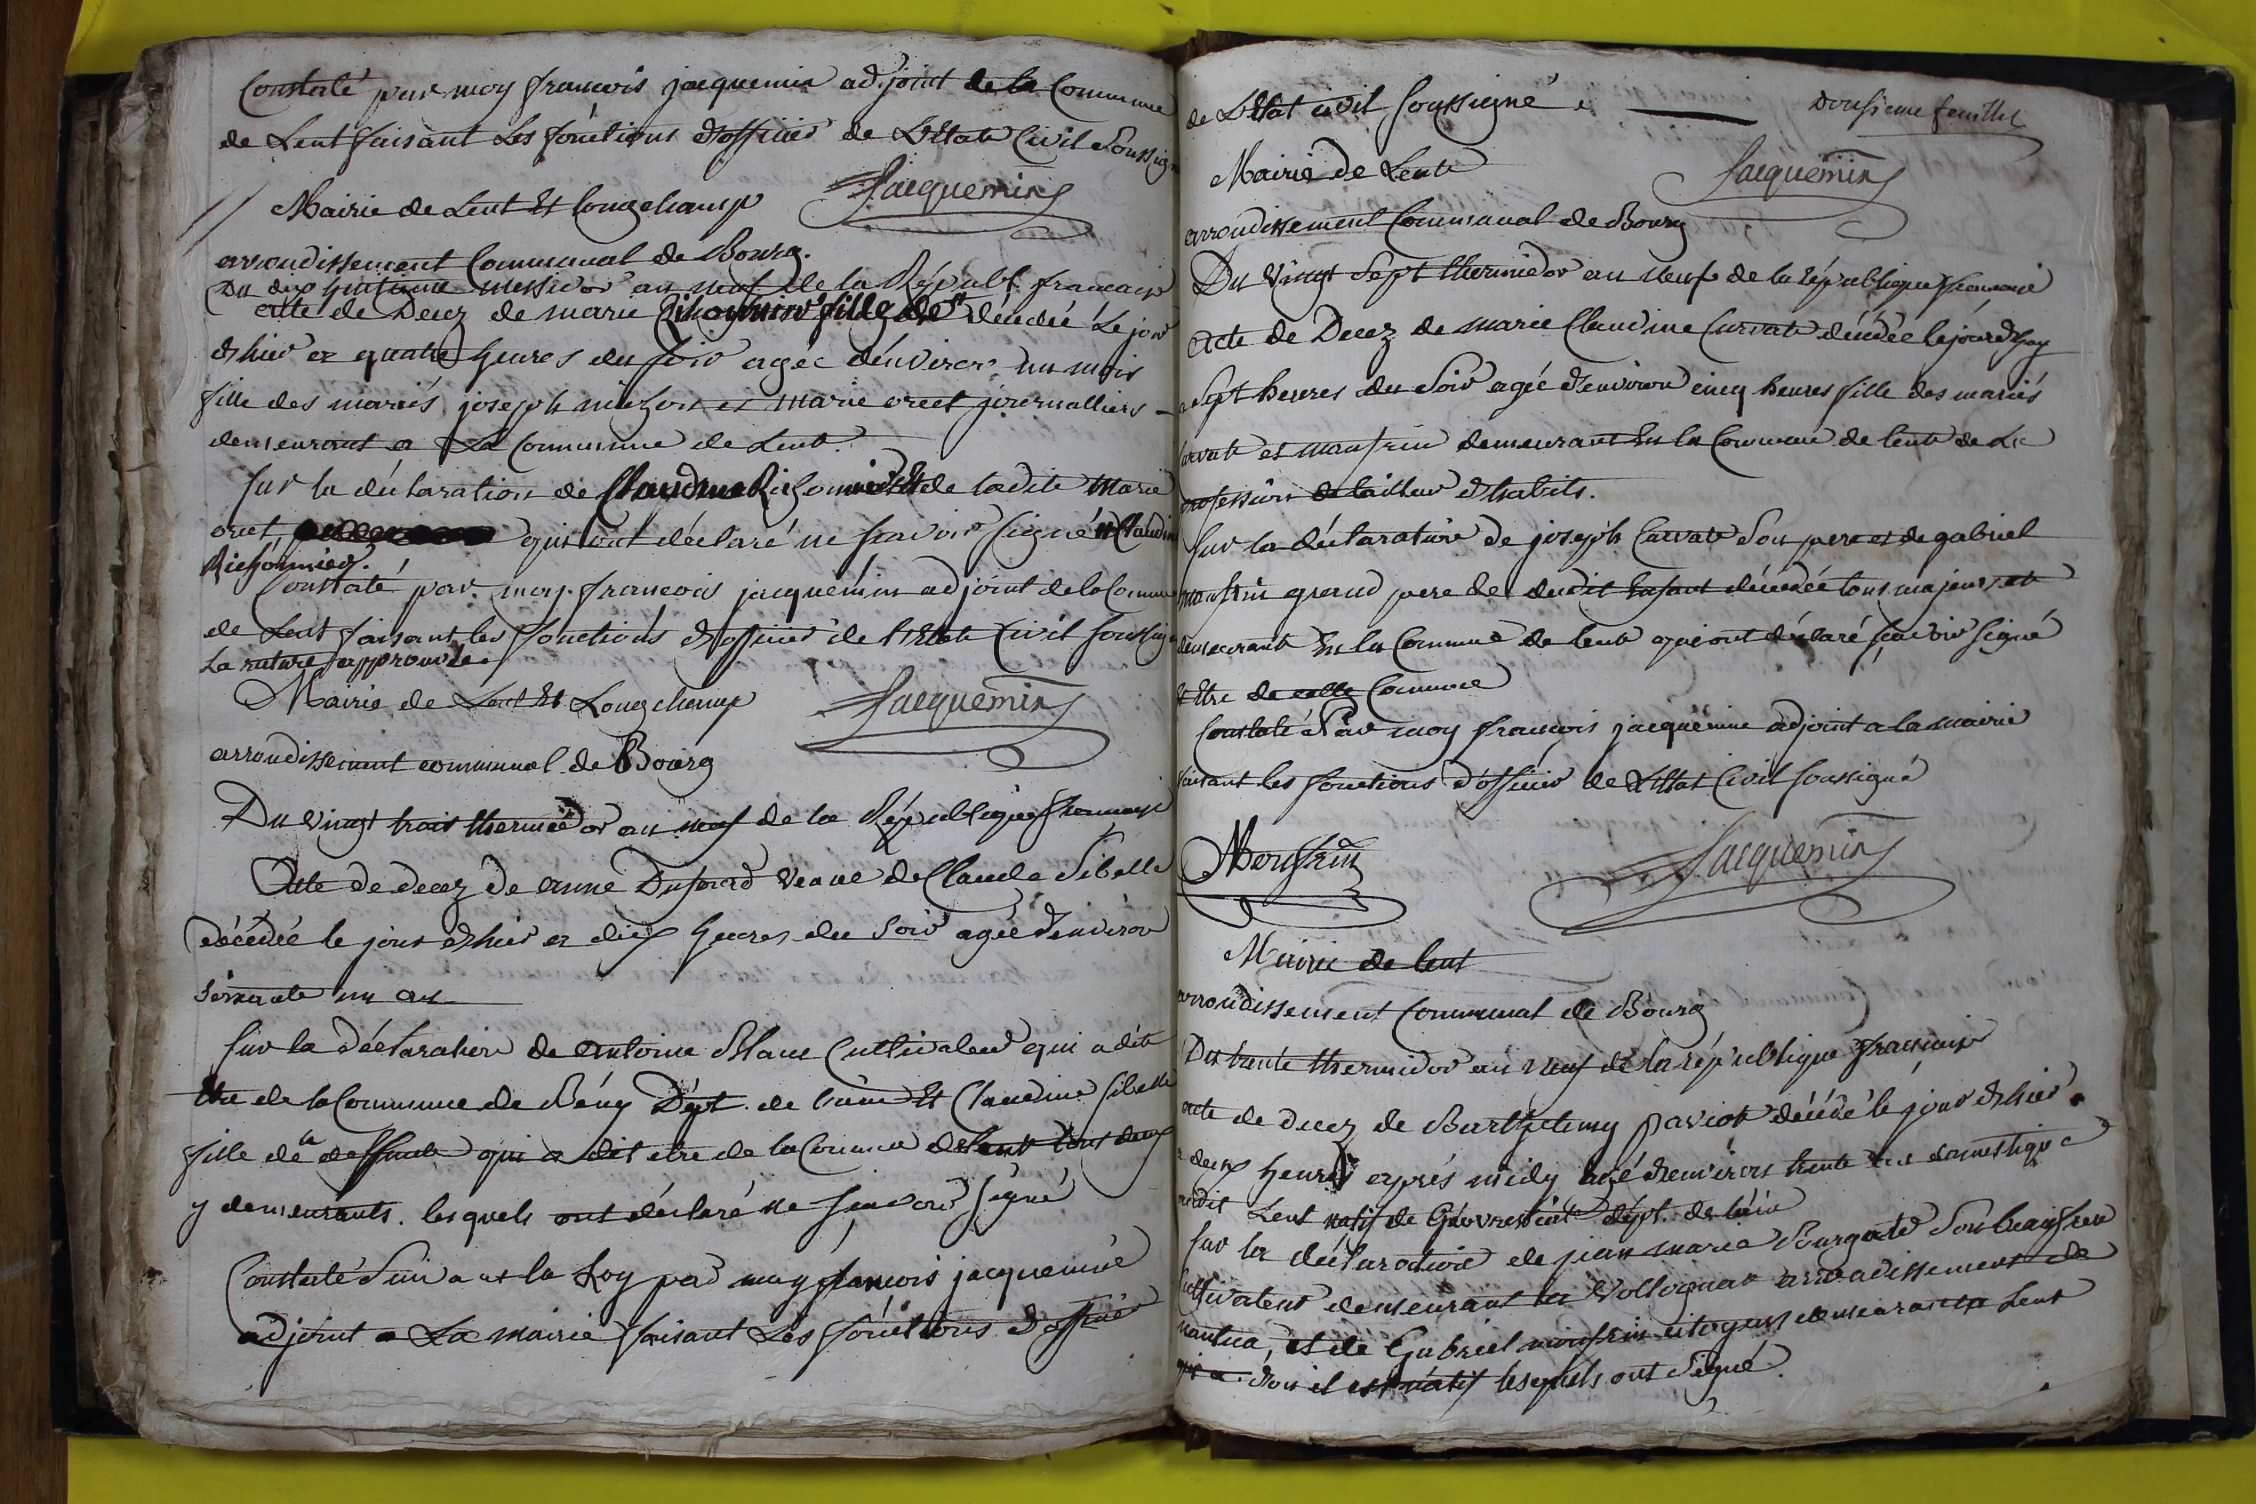 Constaté par moy francois jacquemin adjoint de la Commune
de Lent faisant Les fonctions d'officier de L'Etat Civil Soussigné
Jacquemin
Mairie de Lent Et Longchamp
arrondissement Communal de Bourg.
Du dix huitieme messidor an neuf de la Républ. francaise
acte de Decez de marie fille de décédée Le jour
d'hier a quatre heures du soir agée d'environ un mois
fille des mariés joseph et marie oret journalliers
demeurant a La Commune de Lent.
Sur la déclaration de Claudine et de ladite Marie
oret qui ont déclaré ne scavoir signé Claudine
Constaté par moy francois jacquemin adjoint de la Commune
de Lent faisant les fonctions d'officier de l'Etat Civil soussigné
La rature approuvée
Jacquemin
Mairie de Lent Et Longchamp
arrondissement communal de Bourg
Du vingt trois thermidor an neuf de la République francaise
Acte de decez de anne Dufourd veuve de Claude Sibelle
décédée le jour d'hier a dix heures du Soir agée d'environ
soixante un an
Sur la déclaration de Antoine Blanc Cultivateur qui a dit
etre de la Commune de Bény Dépt. de l'ain Et Claudine Sibelle
fille de la deffunte qui a dit etre de la Commune de Lent tous deux
y demeurants. lesquels ont déclaré ne scavoir signé
Constaté Suivant la Loy par moy francois jacquemin
adjoint a La mairie faisant Les fonctions d'officier
Dousieme feuillet
de L'Etat civil soussigné
Jacquemin
Mairie de Lent
arrondissement Communal de Bourg
Du vingt Sept thermidor an neuf de la république francaise
Acte de Decez de marie Claudine Curvat décédée le jourd'huy
a Sept heures du Soir agée d'environ cinq heures fille des mariés
Curvat et monfrin demeurant En la Commune de lent de La
profession de tailleur d'habits.
Sur la déclaration de joseph Curvat Son pere et de gabriel
monfrin grand pere de dudit Enfant décédée tous majeurs et
demeurant En la Commune de lent qui ont déclaré scavoir signé
Et Etre de cette Commune
Constaté Par moy francois jacquemin adjoint a la mairie
faisant les fonctions d'officier de L'Etat Civil soussigné
Monfrin
Jacquemin
Mairie de lent
arrondissement Communal de Bourg
Du trente thermidor an neuf de la république francaise
acte de decez de Barthelemy paviot décédé le jour d'hier
a deux heures après midy agé d'environ trente domestique
audit Lent natif de Dépt. de l'ain
Sur la déclaration de jean marie Bourgat Son beaufrere
Cultivateur demeurant a Vollognat arrondissement de
nantua, et de Gabriel monfrin citoyen demeurant a Lent
d'ou il est natif lesquels ont Signé.